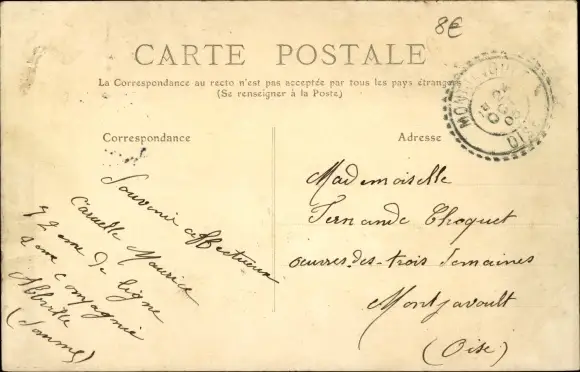 8€
CARTE POSTALE
La Correspondance au recto n'est pas acceptée par tous les pays étrangers
(Se renseigner à la Poste)
Correspondance
Adresse
Souvenir affectueux
Caruelle Maurice
72 eme de ligne
2 eme Compagnie
Abbeville
(Somme)
Mademoiselle
Fernande Choquet
oeuvres-des-trois Semaines
Montjavoult
(Oise)
OISE